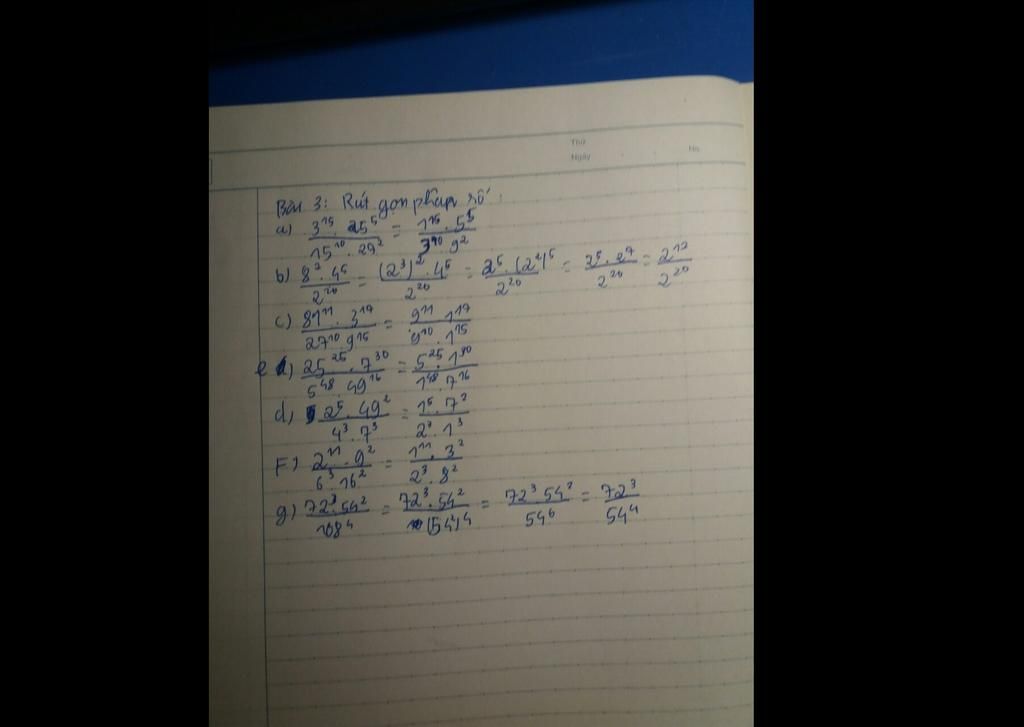 Thứ
Ngày
No.
Bài 3: Rút gọn phân số:
a) 3^15 . 25^5 / 15^10 . 27^2 = 1^15 . 5^5 / 3^10 . 9^2
b) 8^2 . 4^5 / 2^20 = (2^3)^2 . 4^5 / 2^20 = 2^5 . (2^2)^5 / 2^20 = 2^5 . 2^7 / 2^20 = 2^12 / 2^20
c) 81^11 . 3^17 / 27^10 . 9^15 = 9^11 . 1^17 / 9^10 . 1^15
e) 25^25 . 7^30 / 5^48 . 49^16 = 5^25 . 1^30 / 1^48 . 7^16
d) 2^5 . 49^2 / 4^3 . 7^3 = 1^5 . 7^2 / 2^3 . 1^3
F) 2^11 . 9^2 / 6^3 . 16^2 = 1^11 . 3^2 / 2^3 . 8^2
g) 72^3 . 54^2 / 108^4 = 72^3 . 54^2 / (54^2)^4 = 72^3 . 54^2 / 54^6 = 72^3 / 54^4